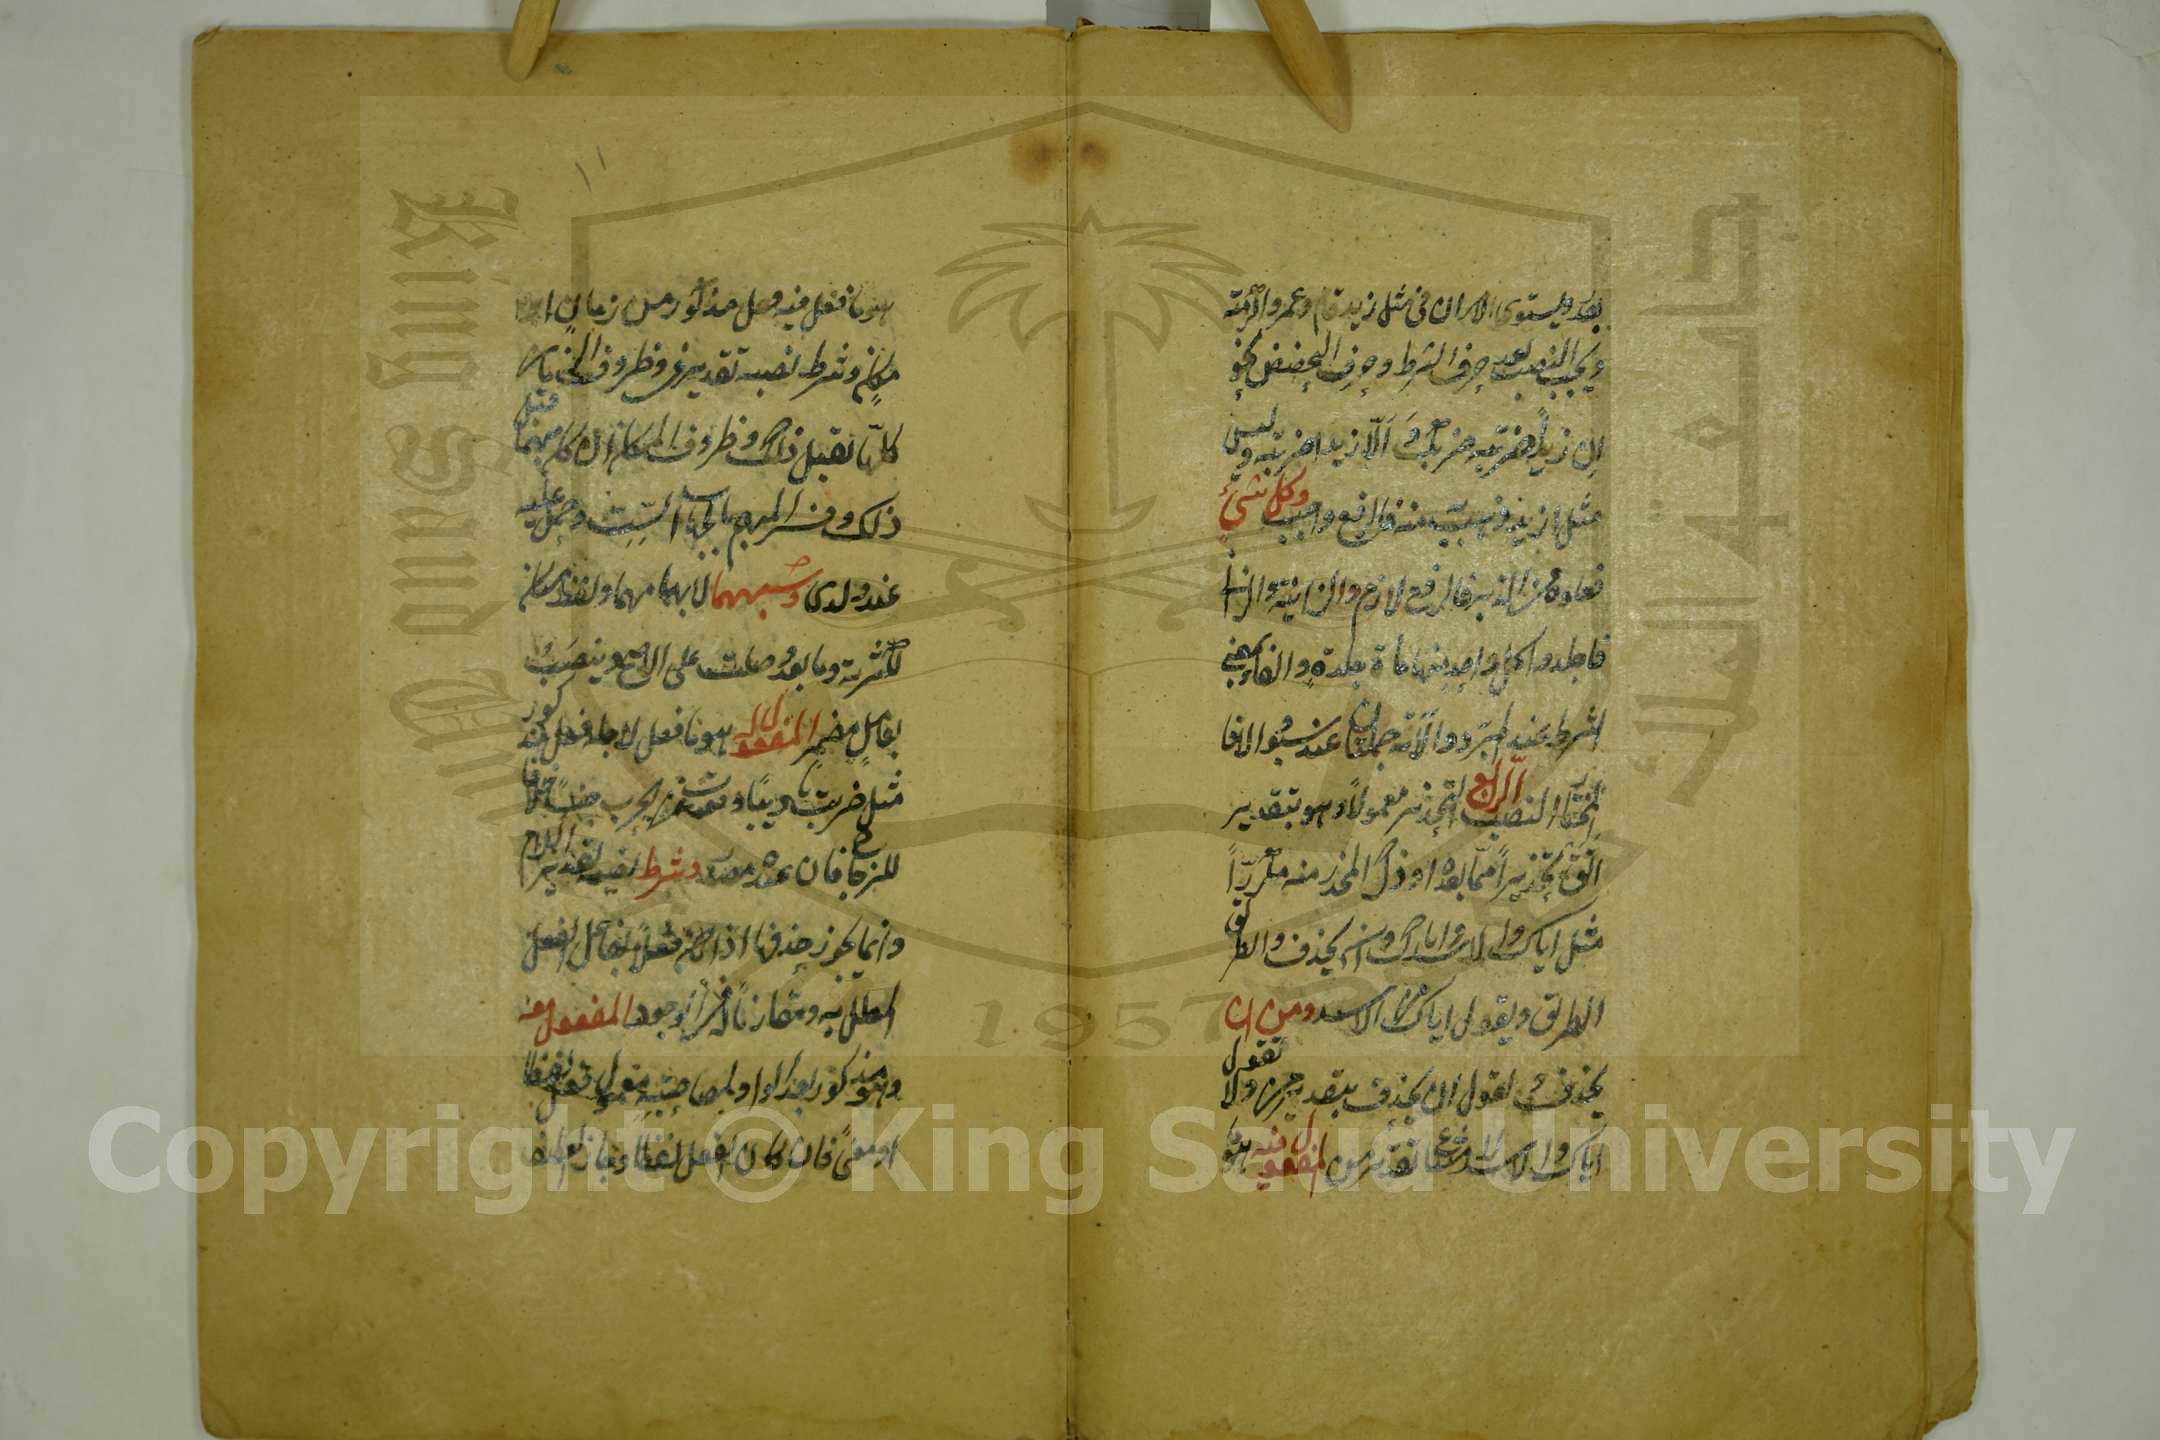 بعده ويستوى الامران فى مثل زيد قام وعمرو اكرمته
ويجب النصب بعد حرف الشرط وحرف التحضيض نحو
ان زيدا ضربته ضربك والا زيدا ضربته وليس
مثل ازيد ذهب به منه فالرفع واجب وكل شئ
فعلوه فى الزبر فالرفع لازم والزانية والزانى
فاجلدوا كل واحد منهما مائة جلدة والفاء بمعنى
الشرط عند المبرد والآية جملتان عند سيبويه والا فا
المختار النصب الرابع التحذير معمول وهو بتقدير
اتق تحذيرا مما بعده او ذكر المحذر منه مكررا
مثل اياك والاسد واياك وان تحذف والطريق
الطريق وتقول اياك من الاسد ومن ان
تحذف وتقول ان تحذف بتقدير من ولا تقول
اياك الاسد لامتناع تقدير من المفعول فيه هو ما
١١
هو ما فعل فيه فعل مذكور من زمان او
مكان وشرط نصبه تقدير فى وظروف الزمان
كلها تقبل ذلك وظروف المكان ان كان مبهما قبل
ذلك وفسر المبهم بالجهات الست وحمل عليه
عند ولدى وشبههما لابهامهما ولفظ مكان
لكثرته وما بعد دخلت على الاصح وينصب
بعامل مضمر المفعول له هو ما فعل لاجله فعل مذكور
مثل ضربت تاديبا وقعدت عن الحرب جبنا خلافا
للزجاج فان عنده مصدر وشرط نصبه تقدير اللام
وانما يجوز حذفها اذا كان فعلا لفاعل الفعل
المعلل به ومقارنا له فى الوجود المفعول معه
وهو مذكور بعد الواو لمصاحبة معمول فعل لفظا
او معنى فان كان الفعل لفظا وجاز العطف
Copyright © King Saud University
King Saud University
1957